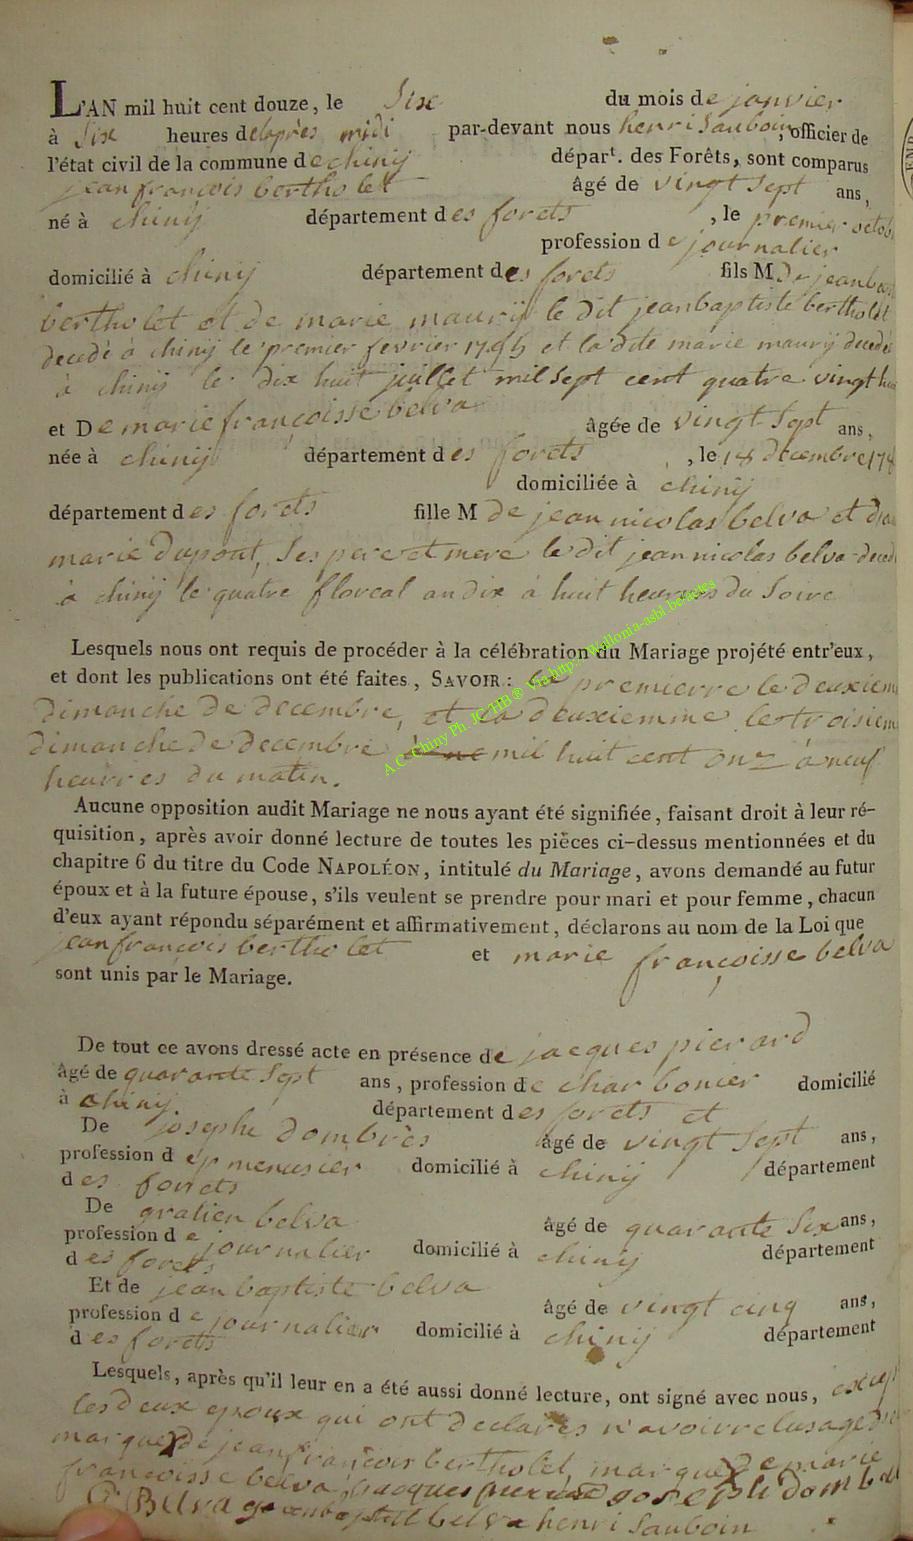 L'AN mil huit cent douze, le Six du mois de janvier
à Six heures delaprès midi par-devant nous henri Sauboin, officier de
l'état civil de la commune de chinÿ départ. des Forêts, sont comparus
jean françois bertholet âgé de vingt sept ans,
né à chinÿ département des forets, le premier octob
profession de journalier
domicilié à chinÿ département des forets fils M De jeanba
bertholet et de marie maurÿ le dit jeanbaptiste bertholet
decedé à chinÿ le premier fevrier et la dite marie maurÿ decedé
à chinÿ le dix huit juillet mil sept cent quatre vingt
et De marie françoisse belva âgée de vingt sept ans,
née à chinÿ département des forets, le 14 decembre 178
domiciliée à chinÿ
département des forets fille M de jean nicolas belva et de
marie Dupont, Ses pere et mere le dit jean nicolas belva deced
à chinÿ le quatre floreal an dix à huit heures du Soire
Lesquels nous ont requis de procéder à la célébration du Mariage projété entr'eux,
et dont les publications ont été faites, SAVOIR: La premierre le deuxiem
Dimanche De decembre, et la deuxiemme le troisiem
Dimanche De decembre mil huit cent onze à neuf
heurres du matin.
Aucune opposition audit Mariage ne nous ayant été signifiée, faisant droit à leur ré-
quisition, après avoir donné lecture de toutes les pièces ci-dessus mentionnées et du
chapitre 6 du titre du Code NAPOLÉON, intitulé du Mariage, avons demandé au futur
époux et à la future épouse, s'ils veulent se prendre pour mari et pour femme, chacun
d'eux ayant répondu séparément et affirmativement, déclarons au nom de la Loi que
jean françois bertholet et marie françoisse belva
sont unis par le Mariage.
De tout ce avons dressé acte en présence de jacques pierard
âgé de quarante Sept ans, profession de charbonier domicilié
à chinÿ. département des forets et
De josephe Dombrès âgé de vingt Sept ans,
profession de menusier domicilié à chinÿ département
des forrets
De gratien belva âgé de quarante Six ans,
profession de journalier domicilié à chinÿ département
des forets
Et de jean baptiste belva âgé de vingt cinq ans,
profession de journalier domicilié à chinÿ département
des forets
Lesquels, après qu'il leur en a été aussi donné lecture, ont signé avec nous, except
les deux epoux qui ont declarés n'avoirre lusage
marque X de jean françoir bertholet, marque X de marie
françoisse belva jacques pierard joseph domb
G Belva jeanbaptist belva henri Sauboin
A.C. Chiny Ph. JC HB ® Via http://Wallonia-asbl.be/actes